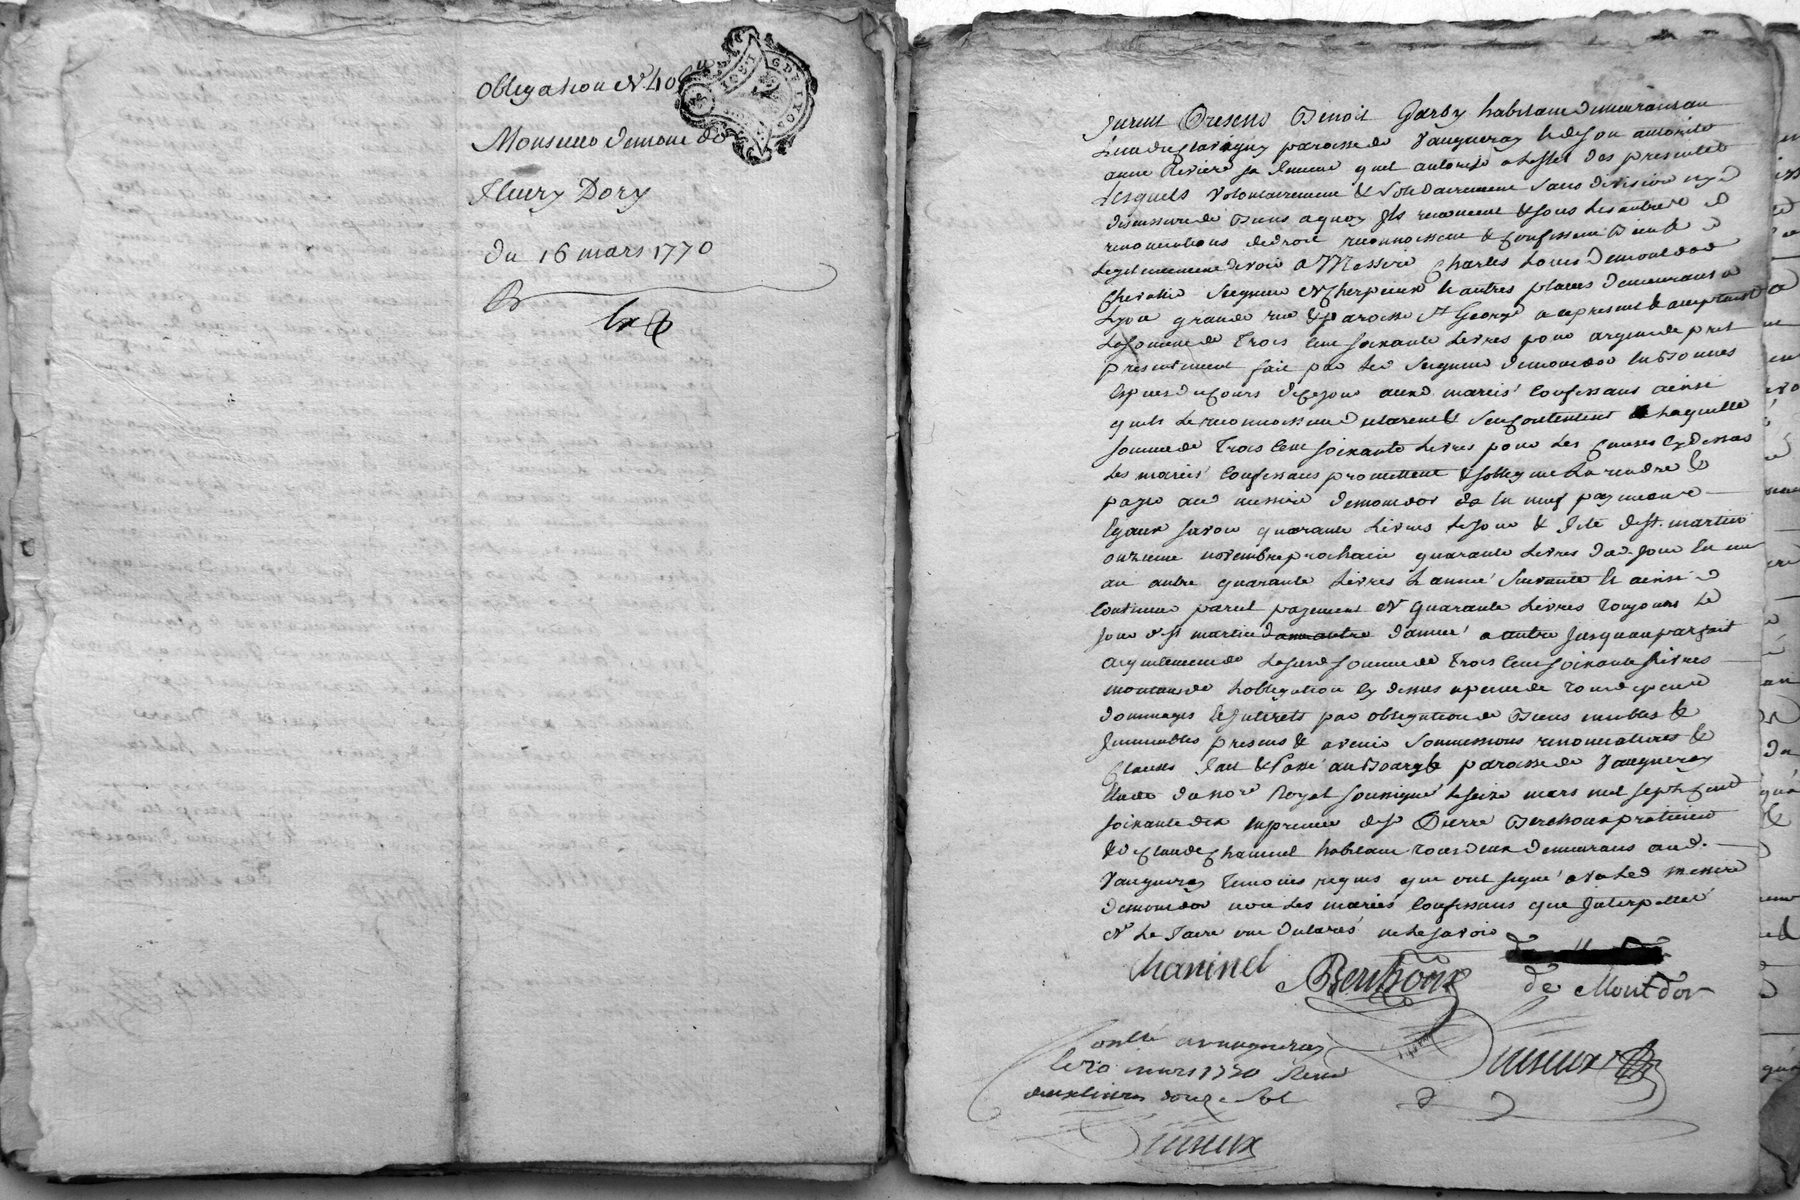 obligation
Monsieur demont dor
Fleury Dory
du 16 mars 1770
furent Presens Benoit habitant demeurant au
paroisse de Vaugneray & de son autorité
anne Riviere sa femme quil autorise a leffet des presentes
Lesquels volontairement & solidairement sans division ny
discussion de Biens a quoy ils renoncent & sous les autres
renonciations de droit reconnoissent & confessent Bien &
Legitimement devoir a Messire Charles Louis demont dor
Chevallier Seigneur & autres places demeurant a
Lyon grande rue & paroisse St George a ce present & acceptant
La somme de Trois Cent soixante Livres pour argent de pret
presentement fait par led Seigneur demontdor en Bonnes
Especes du cours de ce jour auxd mariés Confessans ainsi
quils Le reconnoissent declarent & sen contentent Laquelle
somme de Trois Cent soixante Livres pour Les Causes cy dessus
Les mariés Confessans promettent & sobligent La rendre &
payer aud messire demontdor en neuf payements
Egaux savoir quarante Livres Le jour & fete de st martin
onzieme novembre prochain quarante Livres dud jour en un
an autre quarante Livres L'année suivante & ainsi
Continuer pareil payement de quarante Livres Toujours Le
jour de st martin d'année a autre jusquau parfait
acquittement de La susd somme de Trois Cent soixante Livres
montant de Lobligation cy dessus a peine de Tous depens
dommages & interets par obligation de Biens meubles &
immeubles presens & avenir soumissions renonciations &
Clauses fait & Passé au Bourg & paroisse de Vaugneray
Etude du nore Royal soussigné Le seize mars mil sept Cent
soixante dix en presence de sr Pierre Berthoux praticien
& de Claude Chaninel habitant Tous deux demeurans aud.
Vaugneray Temoins requis qui ont signé avec Led messire
demontdor non Les mariés Confessans qui interpellés
de Le faire ont declarés ne Le savoir
Chaninel Berthoux de Mont dor
Conllé a vaugneray
le 20 mars 1770 Reçu
deux livres douze sols